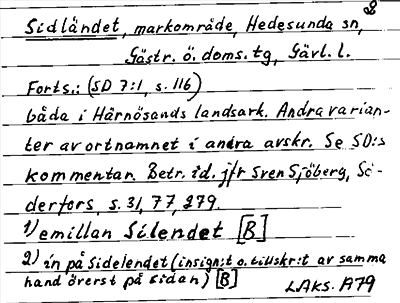 2
Sidländet, markområde, Hedesunda sn,
Gästr. ö. doms. tg, Gävl. l.
Forts.: (SD 7:1, s. 116)
båda i Härnösands landsark. Andra varian-
ter av ortnamnet i andra avskr. Se SD:s
kommentar. Betr. id. jfr Sven Sjöberg, Sö-
derfors, s. 31, 77, 279.
1) emillan Silendet [B]
2) in på Sidelendet (insign:t o. tillskr:t av samma
hand överst på sidan) [B]
LAks. A79